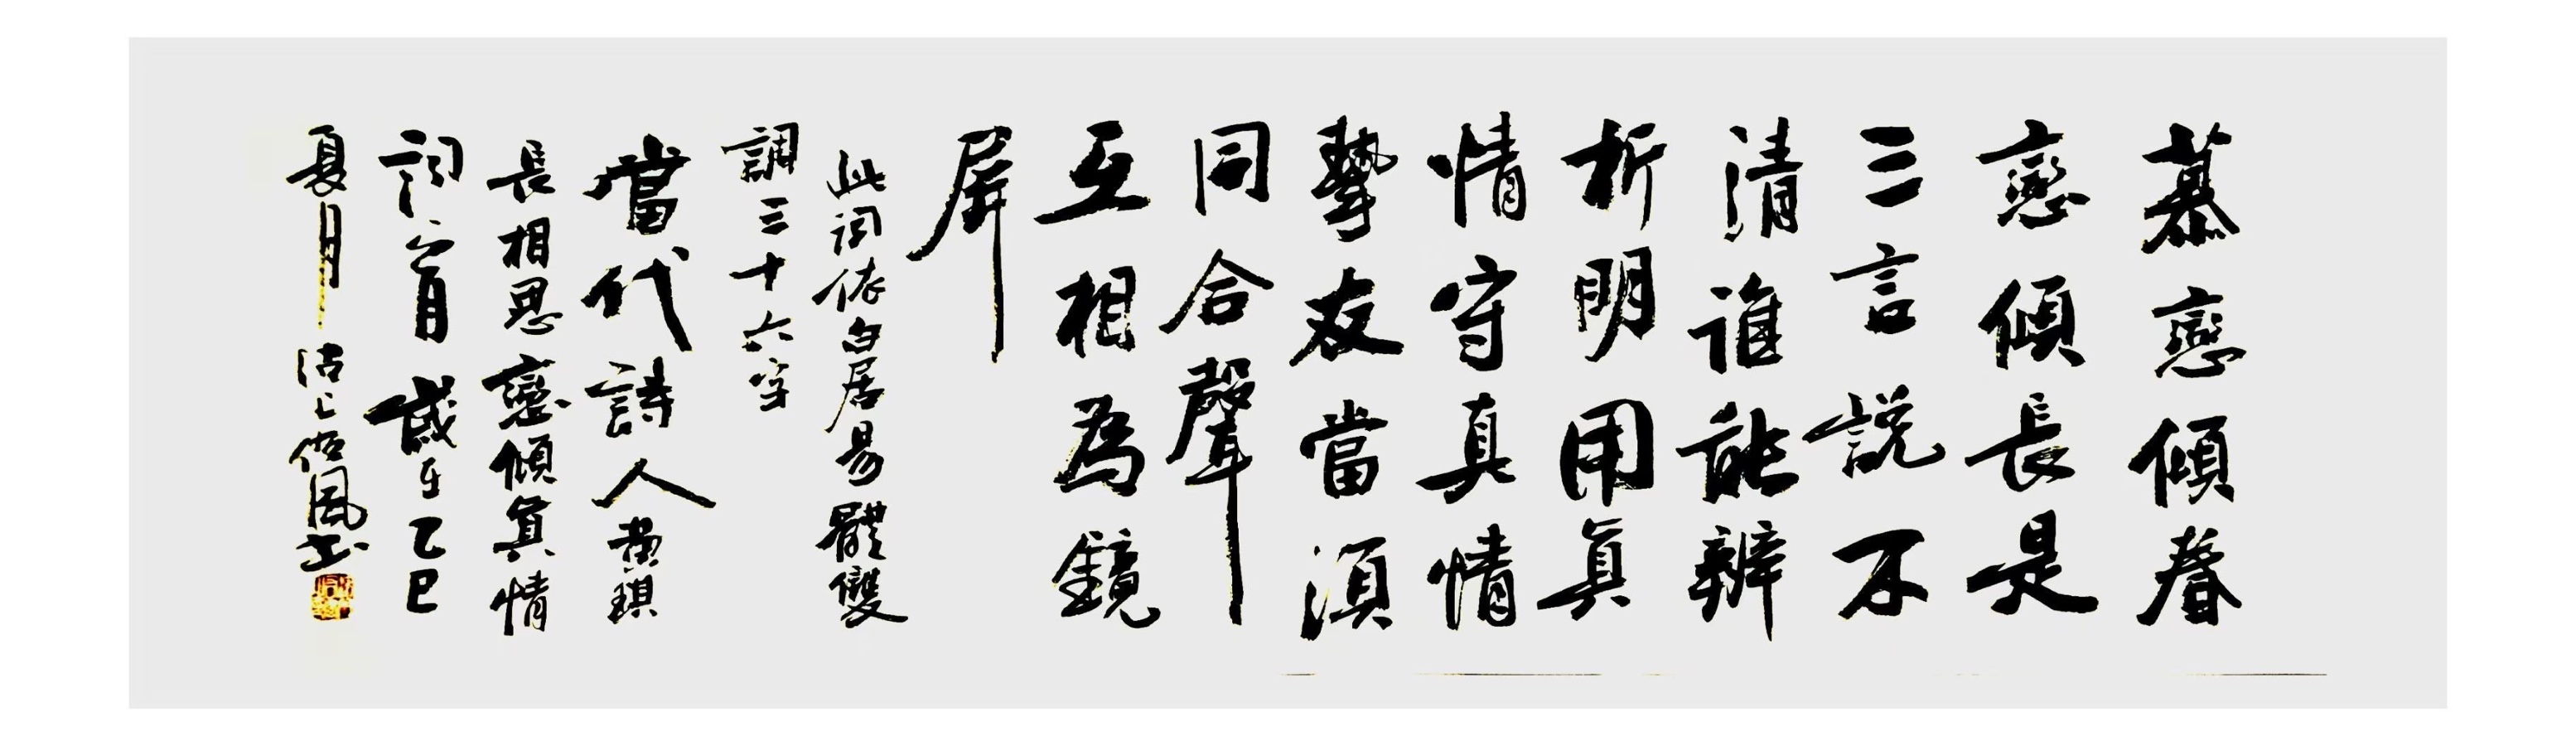 慕戀傾眷
戀傾長是
三言説不
清誰能辨
析明用真
情守真情
摯友當須
同合聲
互相為鏡
屏
此词依白居易體雙
調三十六字
當代詩人黃琪
長相思戀傾真情
詞首歲在乙巳
夏月沽上佑風书